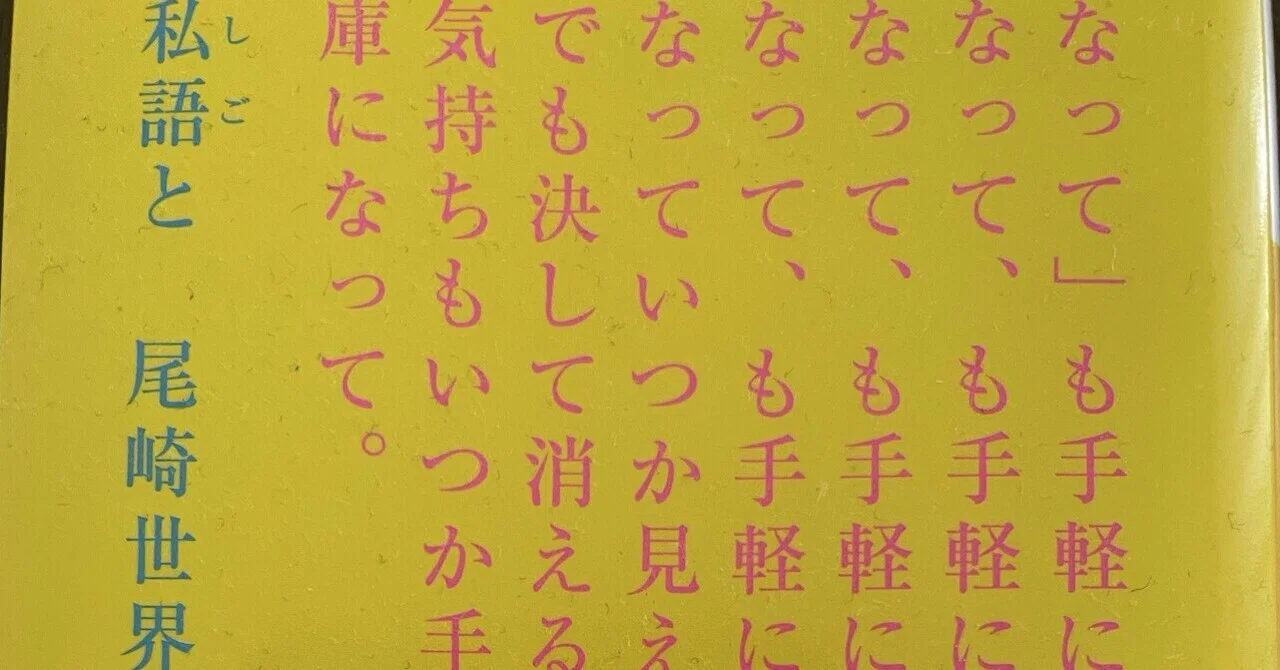 なって」も手軽に
なって、も手軽に
なって、も手軽に
なって、も手軽に
なっていつか見え
でも決して消える
気持ちもいつか手
庫になって。
私語と 尾崎世界
しご